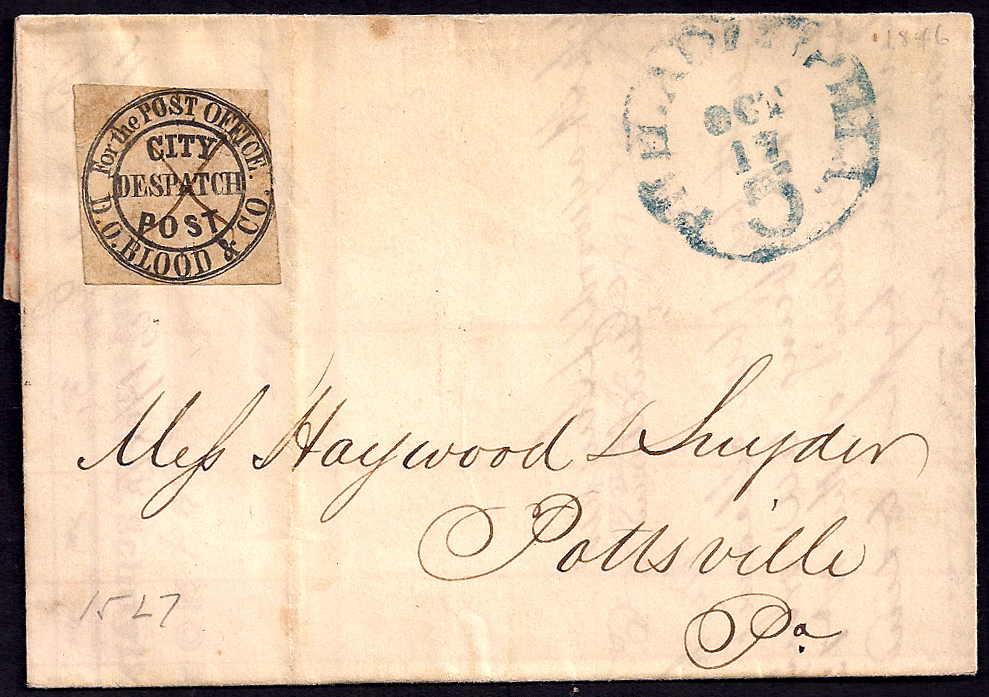 For the POST OFFICE
CITY
DESPATCH
POST
D.O. BLOOD & CO.
1846
PHILADELPHIA
OCT
17
5
Mess Haywood & Snyder
Pottsville
Pa
1527